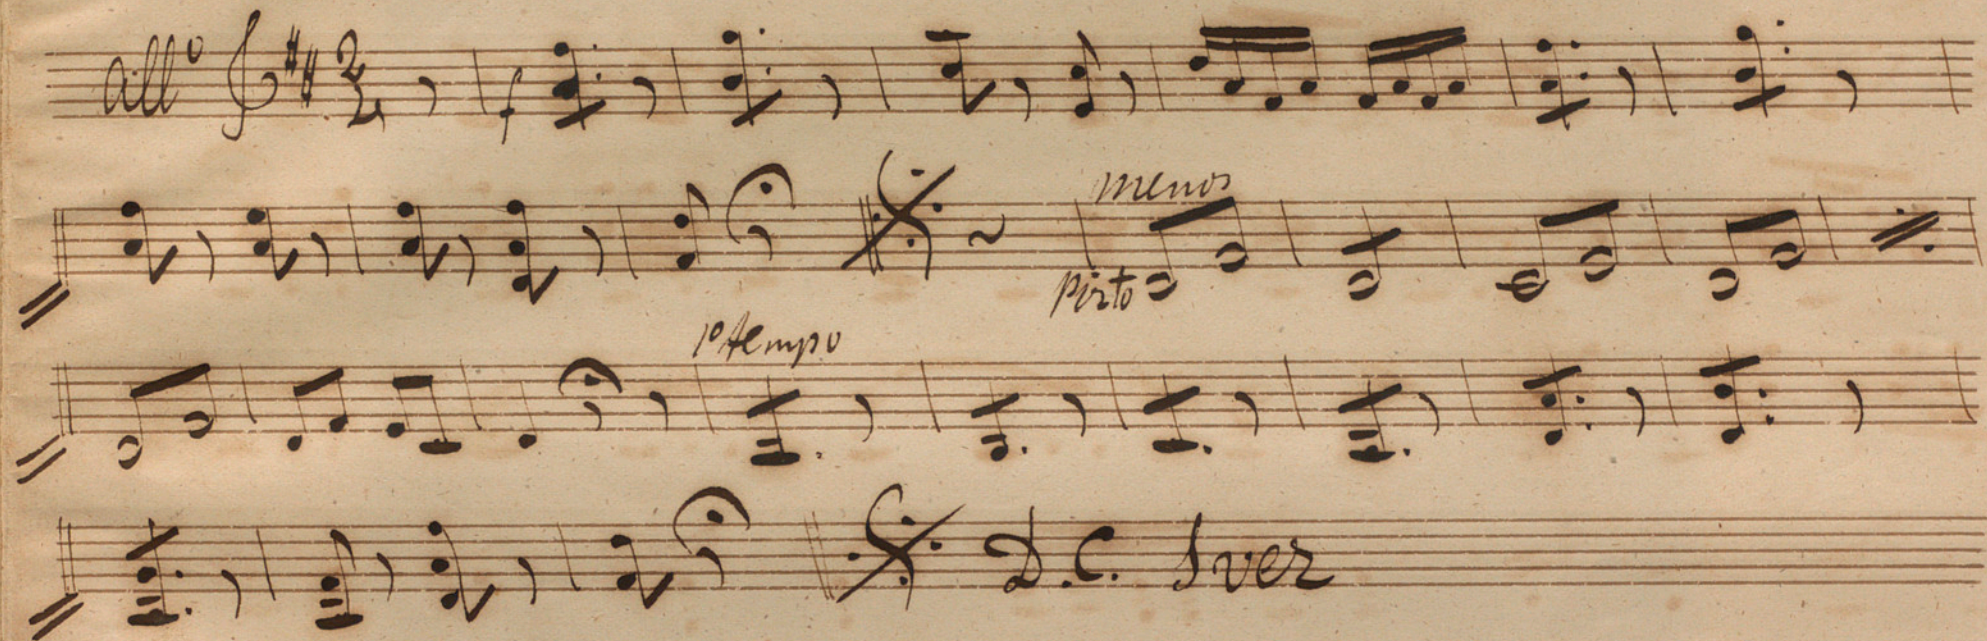 all° 2/4 f
menos
Pizto
1º tempo
D.C. 5 vez